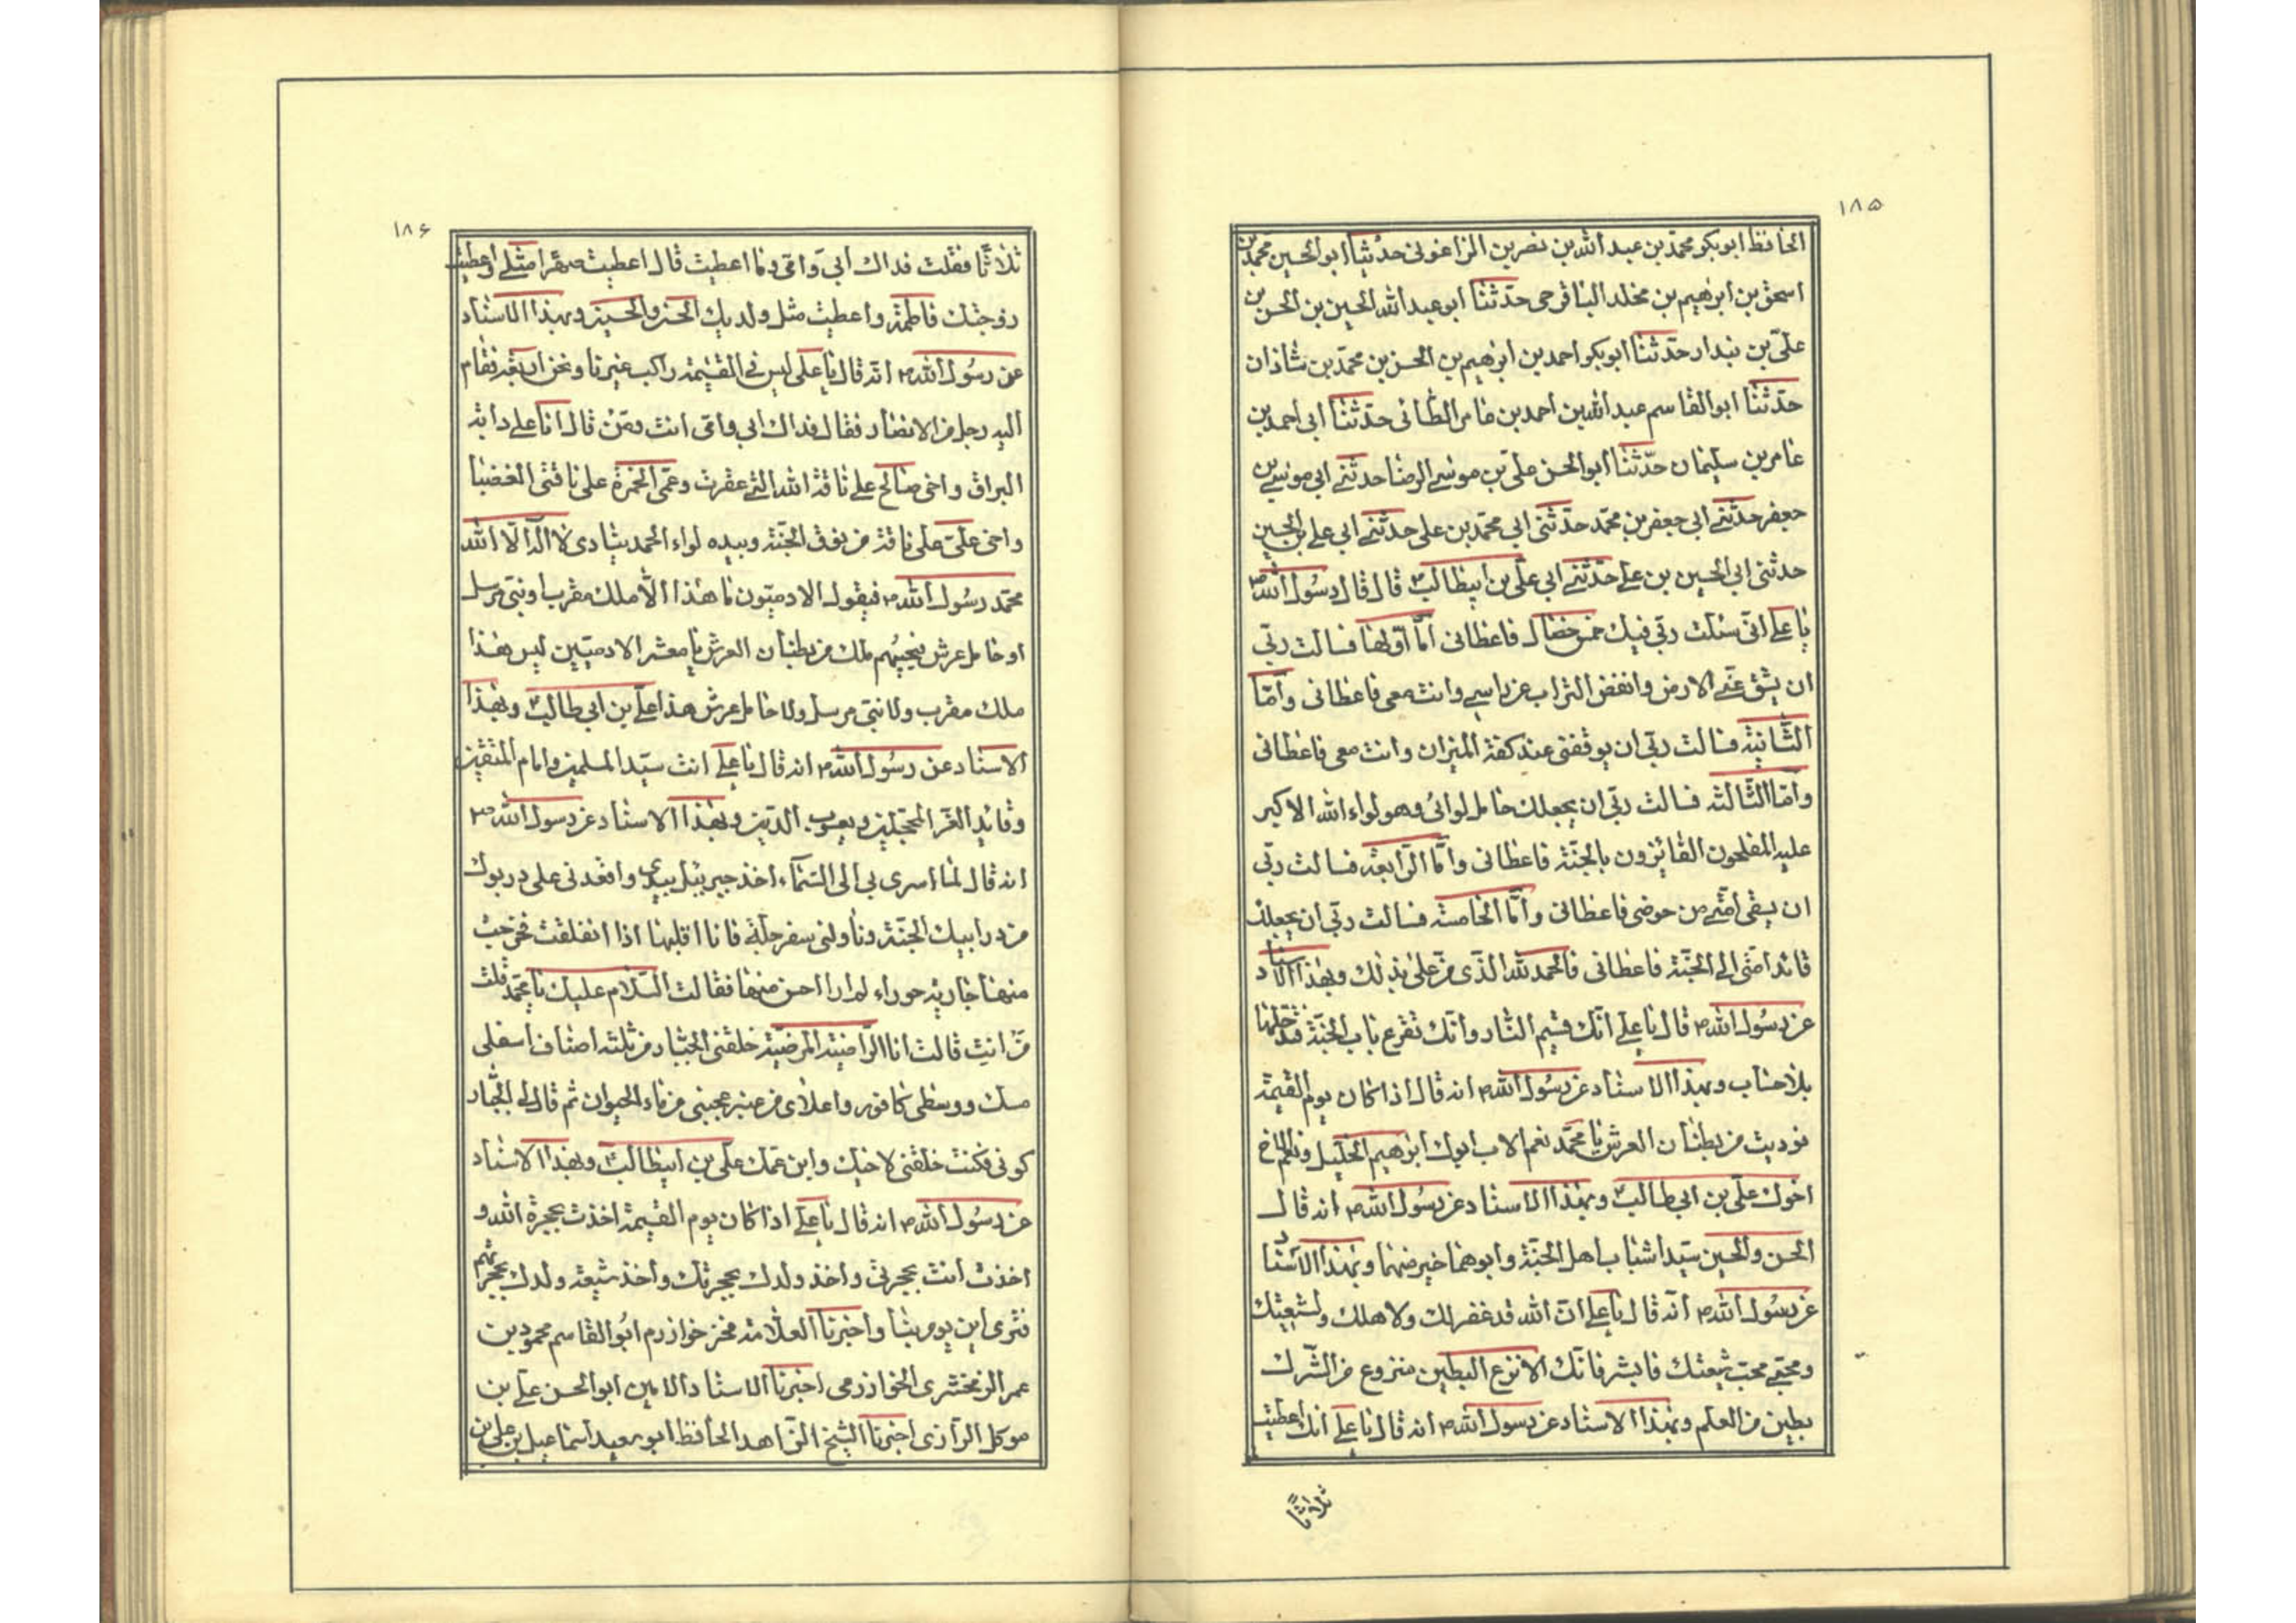 ۱۸۵
الحافظ ابوبكر محمد بن عبد الله بن نصر بن الزاغونى حدثنا ابو الحسين محمد بن
اسحق بن ابرهيم بن مخلد الباقرحى حدثنا ابو عبد الله الحسين بن الحسن بن
علىّ بن بندار حدثنا ابوبكر احمد بن ابرهيم بن الحسن بن محمد بن شاذان
حدّثنا ابو القاسم عبد الله بن احمد بن عامر الطائى حدّثنا ابى احمد بن
عامر بن سليمان حدّثنا ابو الحسن على بن موسى الرضا حدثنى ابى موسى بن
جعفر حدّثنى ابى جعفر بن محمّد حدّثنى ابى محمّد بن على حدّثنى ابى على بن الحسين
حدثنى ابى الحسين بن على حدّثنى ابى علىّ بن ابيطالبؑ قال قال رسول اللهؐ
يا على انّى سئلت ربّى فيك خمس خصال فاعطانى امّا اوّلها فسالت ربّى
ان يشق عنّى الارض وانفض التراب عن راسى وانت معى فاعطانى وامّا
الثّانية فسالت ربّى ان يوقفنى عند كفة الميزان وانت معى فاعطانى
وامّا الثّالثه فسالت ربّى ان يجعلك حامل لوائى وهو لواء الله الاكبر
عليه المفلحون الفائزون بالجنّة فاعطانى وامّا الرّابعة فسالت ربّى
ان يسقى امّتى من حوضى فاعطانى وامّا الخامسة فسالت ربّى ان يجعلك
قائد امّتى الى الجنّة فاعطانى فالحمد لله الذّى منّ علىّ بذلك وبهذا الاسناد
عن رسول الله ص قال يا على انّك قسيم النّار وانّك تقرع باب الجنّة فتدخلها
بلا حساب وبهذا الاسناد عن رسول الله ص انه قال اذا كان يوم القيمة
نوديت من بطنان العرش يا محمّد نعم الاب ابوك ابرهيم الخليل ونعم الاخ
اخوك علىّ بن ابى طالبؑ وبهذا الاسناد عن رسول الله ص انه قال
الحسن والحسين سيّدا شباب اهل الجنّة وابوهما خير منهما وبهذا الاسناد
عن رسول الله ص انّه قال يا على انّ الله قد غفر لك ولاهلك ولشيعتك
ومحبّى محبّ شيعتك فابشر فانّك الانزع البطين منزوع من الشّرك
بطين من العلم وبهذا الاسناد عن رسول الله ص انه قال يا على انك اعطيت
ثلاثًا
۱۸۶
ثلاثًا فقلت فداك ابىّ وامّى وما اعطيت قال اعطيت صهرًا مثلى واعطيت
زوجتك فاطمة واعطيت مثل ولديك الحسن والحسين وبهذا الاسناد
عن رسول الله ص انّه قال يا على ليس فى القيمة راكب غيرنا ونحن اربعة فقام
اليه رجل من الانصار فقال فداك ابى وامّى انت ومن قال انا على دابة
البراق واخى صالح على ناقة الله التى عقرت وعمّى الحمزة على ناقتى الغضبا
واخى علىّ على ناقة من نوق الجنّة وبيده لواء الحمد ينادى لا اله الّا الله
محمّد رسول الله ص فيقول الادميّون ما هذا الّا ملك مقرب او نبىّ مرسل
او حامل عرش فيجيبهم ملك من بطنان العرش يا معشر الادميّين ليس هذا
ملك مقرب ولا نبىّ مرسل ولا حامل عرش هذا علىّ بن ابى طالبؑ وبهذا
الاسناد عن رسول الله ص انه قال يا على انت سيّد المسلمين وامام المتقين
وقائد الغرّ المحجّلين ويعسوب الدّين وبهذا الاسناد عن رسول الله ص
انه قال لمّا اسرى بى الى السّماء اخذ جبرئيل بيدى واقعدنى على درنوك
من درانيك الجنّة وناولنى سفرجلة فانا اقلبها اذا انفلقت فخرجت
منها جارية حوراء لم ار احسن منها فقالت السّلام عليك يا محمّد قلت
من انت قالت انا الرّاضية المرضيّة خلقنى الجبّار من ثلثة اصناف اسفلى
مسك ووسطى كافور واعلاى من عنبر عجبنى من ماء الحيوان ثم قال لى الجبّار
كونى فكنت خلقنى لاخيك وابن عمّك علىّ بن ابيطالبؑ وبهذا الاسناد
عن رسول الله ص انه قال يا على اذا كان يوم القيمة اخذت بحجزة الله و
اخذت انت بحجزتى واخذ ولدك بحجزتك واخذ شيعة ولدك بحجزتهم
فترى اين يومر بنا واخبرنا العلّامة فخر خوارزم ابو القاسم محمود بن
عمر الزمخشرى الخوارزمى اخبرنا الاستاد الامين ابو الحسن على بن
موكل الرّازى اخبرنا الشيخ الزّاهد الحافظ ابو سعيد اسماعيل بن على بن